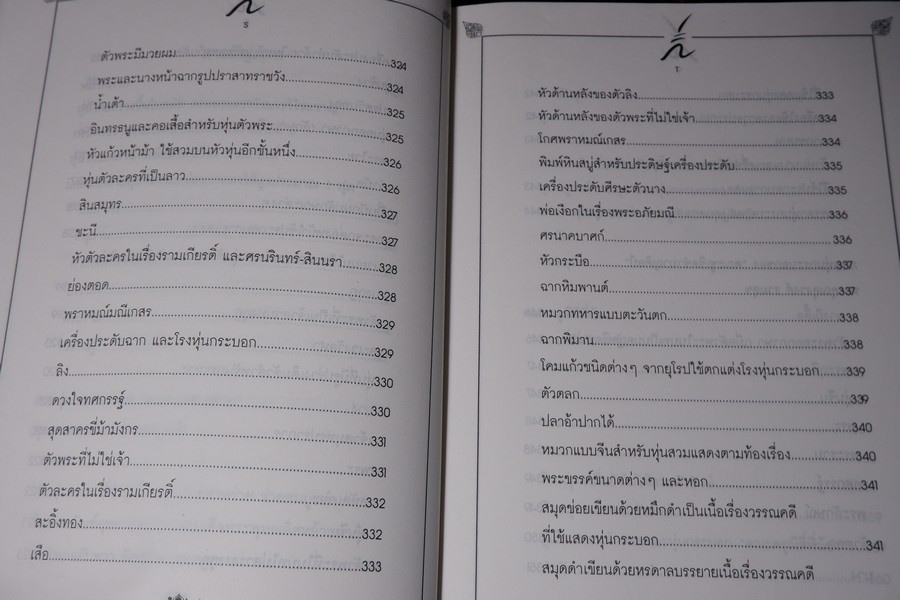 ธ
ตัวพระมีมวยผม....324
พระและนางหน้าฉากรูปปราสาทราชวัง....324
น้ำเต้า....325
อินทรธนูและคอเสื้อสำหรับหุ่นตัวพระ....325
หัวแก้วหน้าม้า ใช้สวมบนหัวหุ่นอีกชั้นหนึ่ง....326
หุ่นตัวละครที่เป็นลาว....326
สินสมุทร....327
ชะนี....327
หัวตัวละครในเรื่องรามเกียรติ์ และศรนรินทร์-สินนรา....328
ย่องตอด....328
พราหมณ์มณีเกสร....329
เครื่องประดับฉาก และโรงหุ่นกระบอก....329
ลิง....330
ดวงใจทศกรรฐ์....330
สุดสาครขี่ม้ามังกร....331
ตัวพระที่ไม่ใช่เจ้า....331
ตัวละครในเรื่องรามเกียรติ์....332
สะอิ้งทอง....332
เสือ....333
หัวด้านหลังของตัวลิง....333
หัวด้านหลังของตัวพระที่ไม่ใช่เจ้า....334
โกศพราหมณ์เกสร....334
พิมพ์หินสบู่สำหรับประดิษฐ์เครื่องประดับ....335
เครื่องประดับศีรษะตัวนาง....335
พ่อเงือกในเรื่องพระอภัยมณี....336
ศรนาคบาศก์....336
หัวกระบือ....337
ฉากหิมพานต์....337
หมวกทหารแบบตะวันตก....338
ฉากพิมาน....338
โคมแก้วชนิดต่างๆ จากยุโรปใช้ตกแต่งโรงหุ่นกระบอก....339
ตัวตลก....339
ปลาอ้าปากได้....340
หมวกแบบจีนสำหรับหุ่นสวมแสดงตามท้องเรื่อง....340
พระขรรค์ขนาดต่างๆ และหอก....341
สมุดข่อยเขียนด้วยหมึกดำเป็นเนื้อเรื่องวรรณคดี
ที่ใช้แสดงหุ่นกระบอก....341
สมุดดำเขียนด้วยหรดาลบรรยายเนื้อเรื่องวรรณคดี